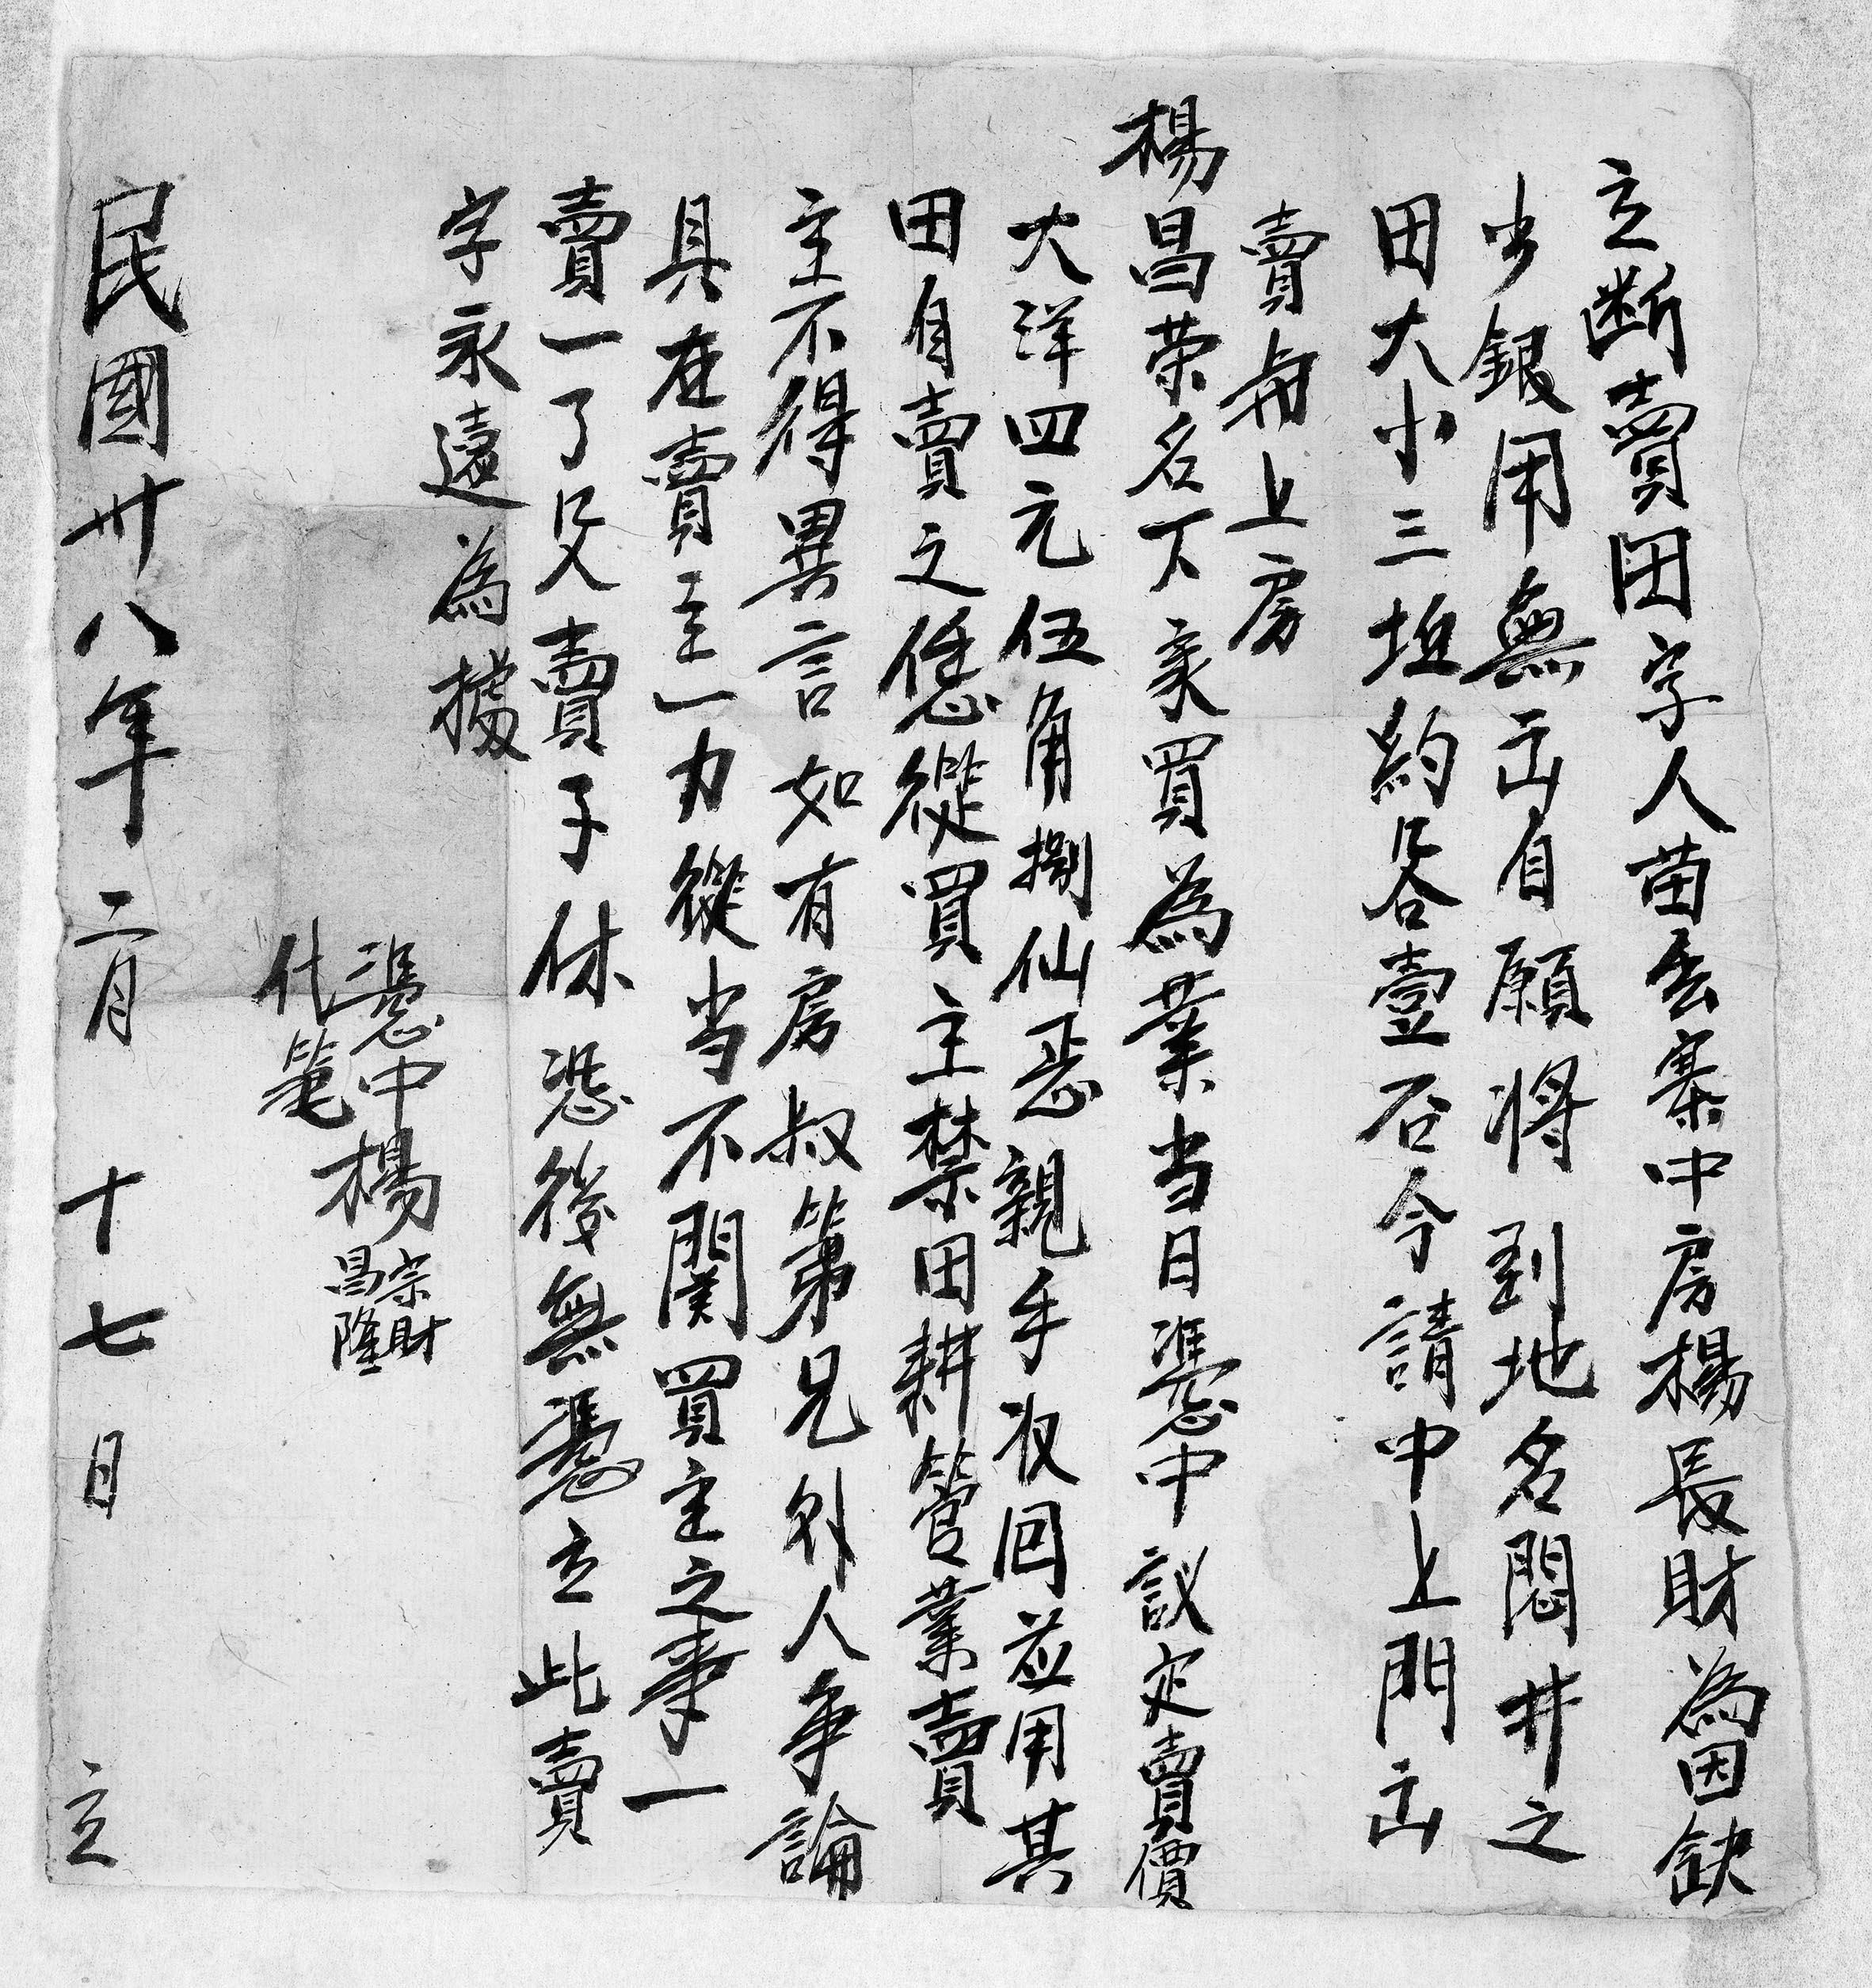 立断賣田字人苗舍寨中房楊長財為因缺
少銀用無出自願將到地名悶井之
田大小三坵約谷壹石今請中上門出
賣與上房
楊昌荣名下承買為業当日憑中議定賣價
大洋四元伍角捌仙忢親手收回並用其
田自賣之恁從買主禁田耕管業賣
主不得異言如有房叔第兄外人争論
具在賣主一力從当不関買主之事一
賣一了父賣子休恐後無憑立此賣
字永遠為據
憑中楊宗財
代筆昌隆
民國卅八年二月十七日立